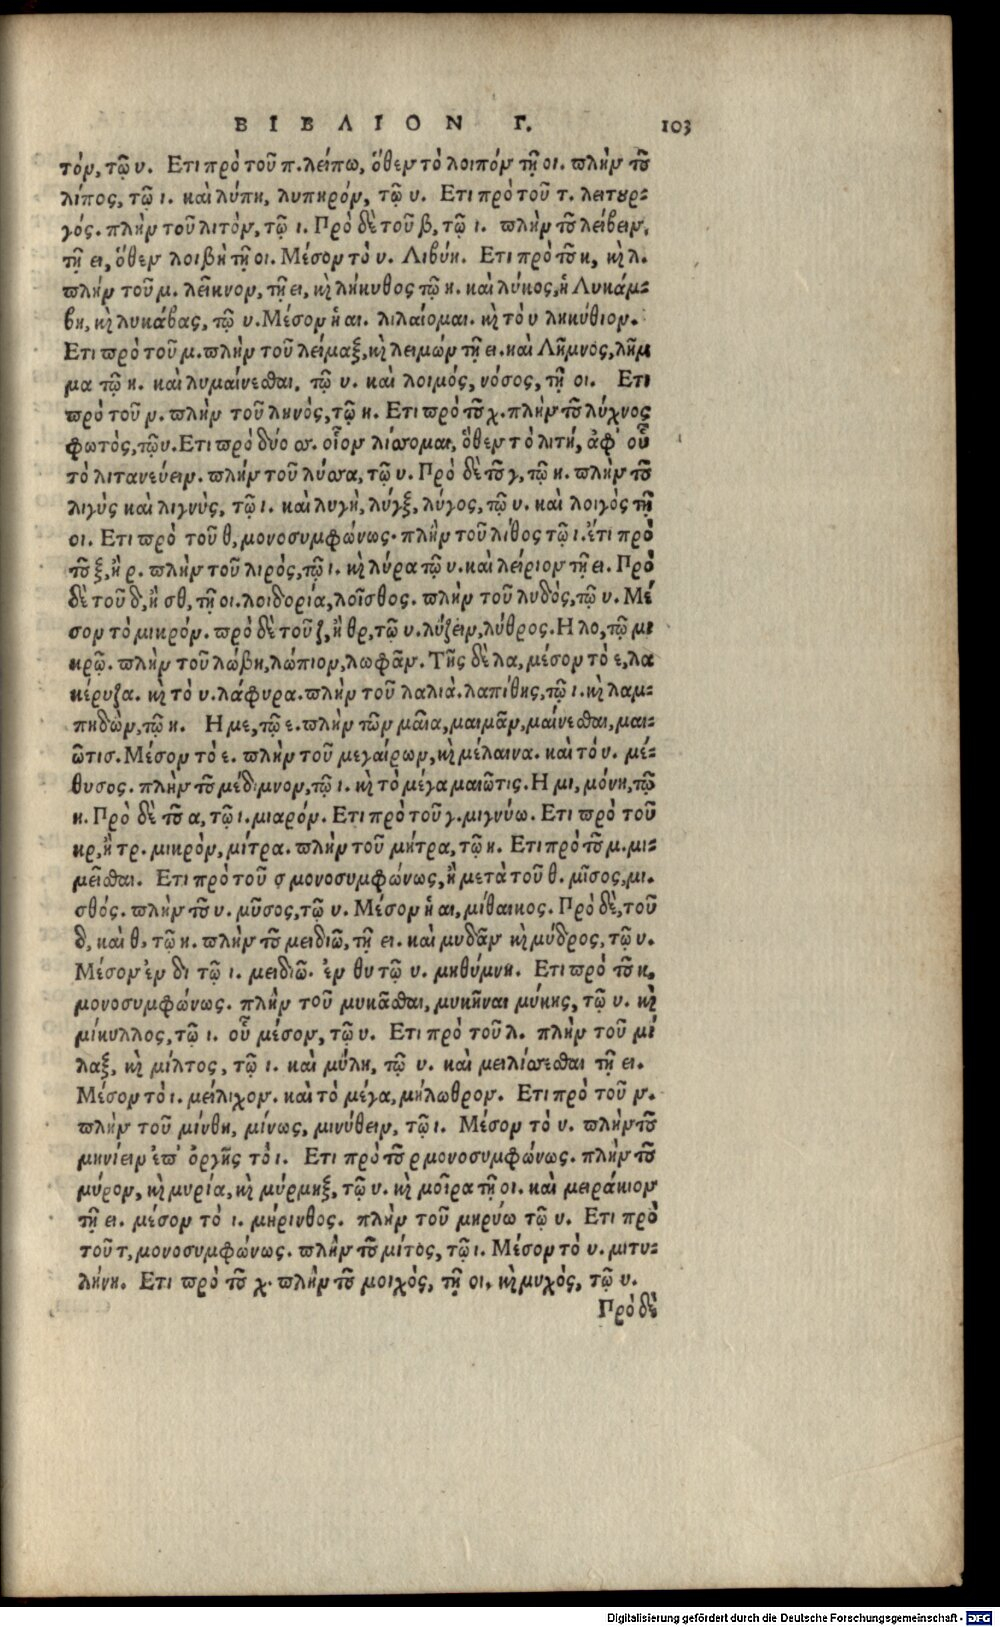 ΒΙΒΛΙΟΝ Γ. 103
τόν, τῷ υ. Ετι πρὸ τοῦ π. λείπω, ὅθεν τὸ λοιπόν τῇ οι. πλὴν τοῦ
λίπος, τῷ ι. καὶ λύπη, λυπηρόν, τῷ υ. Ετι πρὸ τοῦ τ. λειτουρ-
γός. πλὴν τοῦ λιτόν, τῷ ι. Πρὸ δὲ τοῦ β, τῷ ι. πλὴν τοῦ λείβειν,
τῇ ει, ὅθεν λοιβὴ τῇ οι. Μέσον τὸ υ. Λιβύη. Ετι πρὸ τοῦ κ, καὶ λ.
πλὴν τοῦ μ. λεῖκνον, τῇ ει, καὶ λήκυθος τῷ η. καὶ λύκος, ἡ Λυκάμ-
βη, καὶ λυκάβας, τῷ υ. Μέσον ἡ αι. λιλαίομαι. καὶ τὸ υ ληκύθιον.
Ετι πρὸ τοῦ μ. πλὴν τοῦ λείμαξ, καὶ λειμών τῇ ει. καὶ Λῆμνος, λῆμ
μα τῷ η. καὶ λυμαίνεσθαι, τῷ υ. καὶ λοιμός, νόσος, τῇ οι. Ετι
πρὸ τοῦ ν. πλὴν τοῦ ληνὸς, τῷ η. Ετι πρὸ τοῦ χ. πλὴν τοῦ λύχνος
φωτὸς, τῷ υ. Ετι πρὸ δύο σσ. οἷον λίσσομαι, ὅθεν τὸ λιτή, ἀφ' οὗ
τὸ λιτανεύειν. πλὴν τοῦ λύσσα, τῷ υ. Πρὸ δὲ τοῦ γ, τῷ η. πλὴν τοῦ
λιγὺς καὶ λιγνὺς, τῷ ι. καὶ λυγὴ, λύγξ, λύγος, τῷ υ. καὶ λοιγὸς τῇ
οι. Ετι πρὸ τοῦ θ, μονοσυμφώνως. πλὴν τοῦ λίθος τῷ ι. ἔτι πρὸ
τοῦ ξ, ἢ ρ. πλὴν τοῦ λιρὸς, τῷ ι. καὶ λύρα τῷ υ. καὶ λείριον τῇ ει. Πρὸ
δὲ τοῦ δ, ἢ σθ, τῇ οι. λοιδορία, λοῖσθος. πλὴν τοῦ λυδὸς, τῷ υ. Μέ
σον τὸ μικρόν. πρὸ δὲ τοῦ ζ, ἢ θρ, τῷ υ. λύζειν, λύθρος. Η λο, τῷ μι
κρῷ. πλὴν τοῦ λώβη, λώπιον, λωφᾶν. Τῆς δὲ λα, μέσον τὸ ε, λα
κέρυζα. καὶ τὸ υ. λάφυρα. πλὴν τοῦ λαλιά. λαπίθης, τῷ ι. καὶ λαμ-
πηδὼν, τῷ η. Η με, τῷ ε. πλὴν τῶν μαῖα, μαιμᾶν, μαίνεσθαι, μαι-
ῶτισ. Μέσον τὸ ε. πλὴν τοῦ μεγαίρων, καὶ μέλαινα. καὶ τὸ υ. μέ-
θυσος. πλὴν τοῦ μέδιμνον, τῷ ι. καὶ τὸ μέγα μαιῶτις. Η μι, μόνη, τῷ
η. Πρὸ δὲ τοῦ α, τῷ ι. μιαρόν. Ετι πρὸ τοῦ γ. μιγνύω. Ετι πρὸ τοῦ
κρ, ἢ τρ. μικρὸν, μίτρα. πλὴν τοῦ μήτρα, τῷ η. Ετι πρὸ τοῦ μ. μι-
μεῖσθαι. Ετι πρὸ τοῦ σ μονοσυμφώνως, ἢ μετὰ τοῦ θ. μῖσος, μι-
σθός. πλὴν τοῦ υ. μῦσος, τῷ υ. Μέσον ἡ αι, μίθαικος. Πρὸ δὲ, τοῦ
δ, καὶ θ, τῷ η. πλὴν τοῦ μειδιῶ, τῇ ει. καὶ μυδᾶν καὶ μύδρος, τῷ υ.
Μέσον ἐν δι τῷ ι. μειδιῶ. ἐν θυ τῷ υ. μηθύμνη. Ετι πρὸ τοῦ κ,
μονοσυμφώνως. πλὴν τοῦ μυκᾶσθαι, μυκῆναι μύκης, τῷ υ. καὶ
μίκυλλος, τῷ ι. οὗ μέσον, τῷ υ. Ετι πρὸ τοῦ λ. πλὴν τοῦ μί
λαξ, καὶ μίλτος, τῷ ι. καὶ μύλη, τῷ υ. καὶ μειλίσσεσθαι τῇ ει.
Μέσον τὸ ι. μείλιχον. καὶ τὸ μέγα, μήλωθρον. Ετι πρὸ τοῦ ν.
πλὴν τοῦ μίνθη, μίνως, μινύθειν, τῷ ι. Μέσον τὸ υ. πλὴν τοῦ
μηνίειν ἐπ' ὀργῆς τὸ ι. Ετι πρὸ τοῦ ρ μονοσυμφώνως. πλὴν τοῦ
μύρον, καὶ μυρία, καὶ μύρμηξ, τῷ υ. καὶ μοῖρα τῇ οι. καὶ μειράκιον
τῇ ει. μέσον τὸ ι. μήρινθος. πλὴν τοῦ μηρύω τῷ υ. Ετι πρὸ
τοῦ τ, μονοσυμφώνως. πλὴν τοῦ μίτος, τῷ ι. Μέσον τὸ υ. μιτυ-
λήνη. Ετι πρὸ τοῦ χ. πλὴν τοῦ μοιχός, τῇ οι. καὶ μυχός, τῷ υ.
Πρὸ δὲ
Digitalisierung gefördert durch die Deutsche Forschungsgemeinschaft - DFG